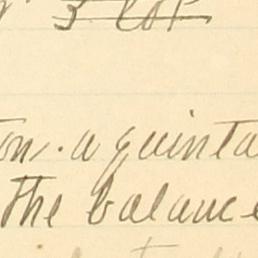 3 lot
on. a quinta
The balance